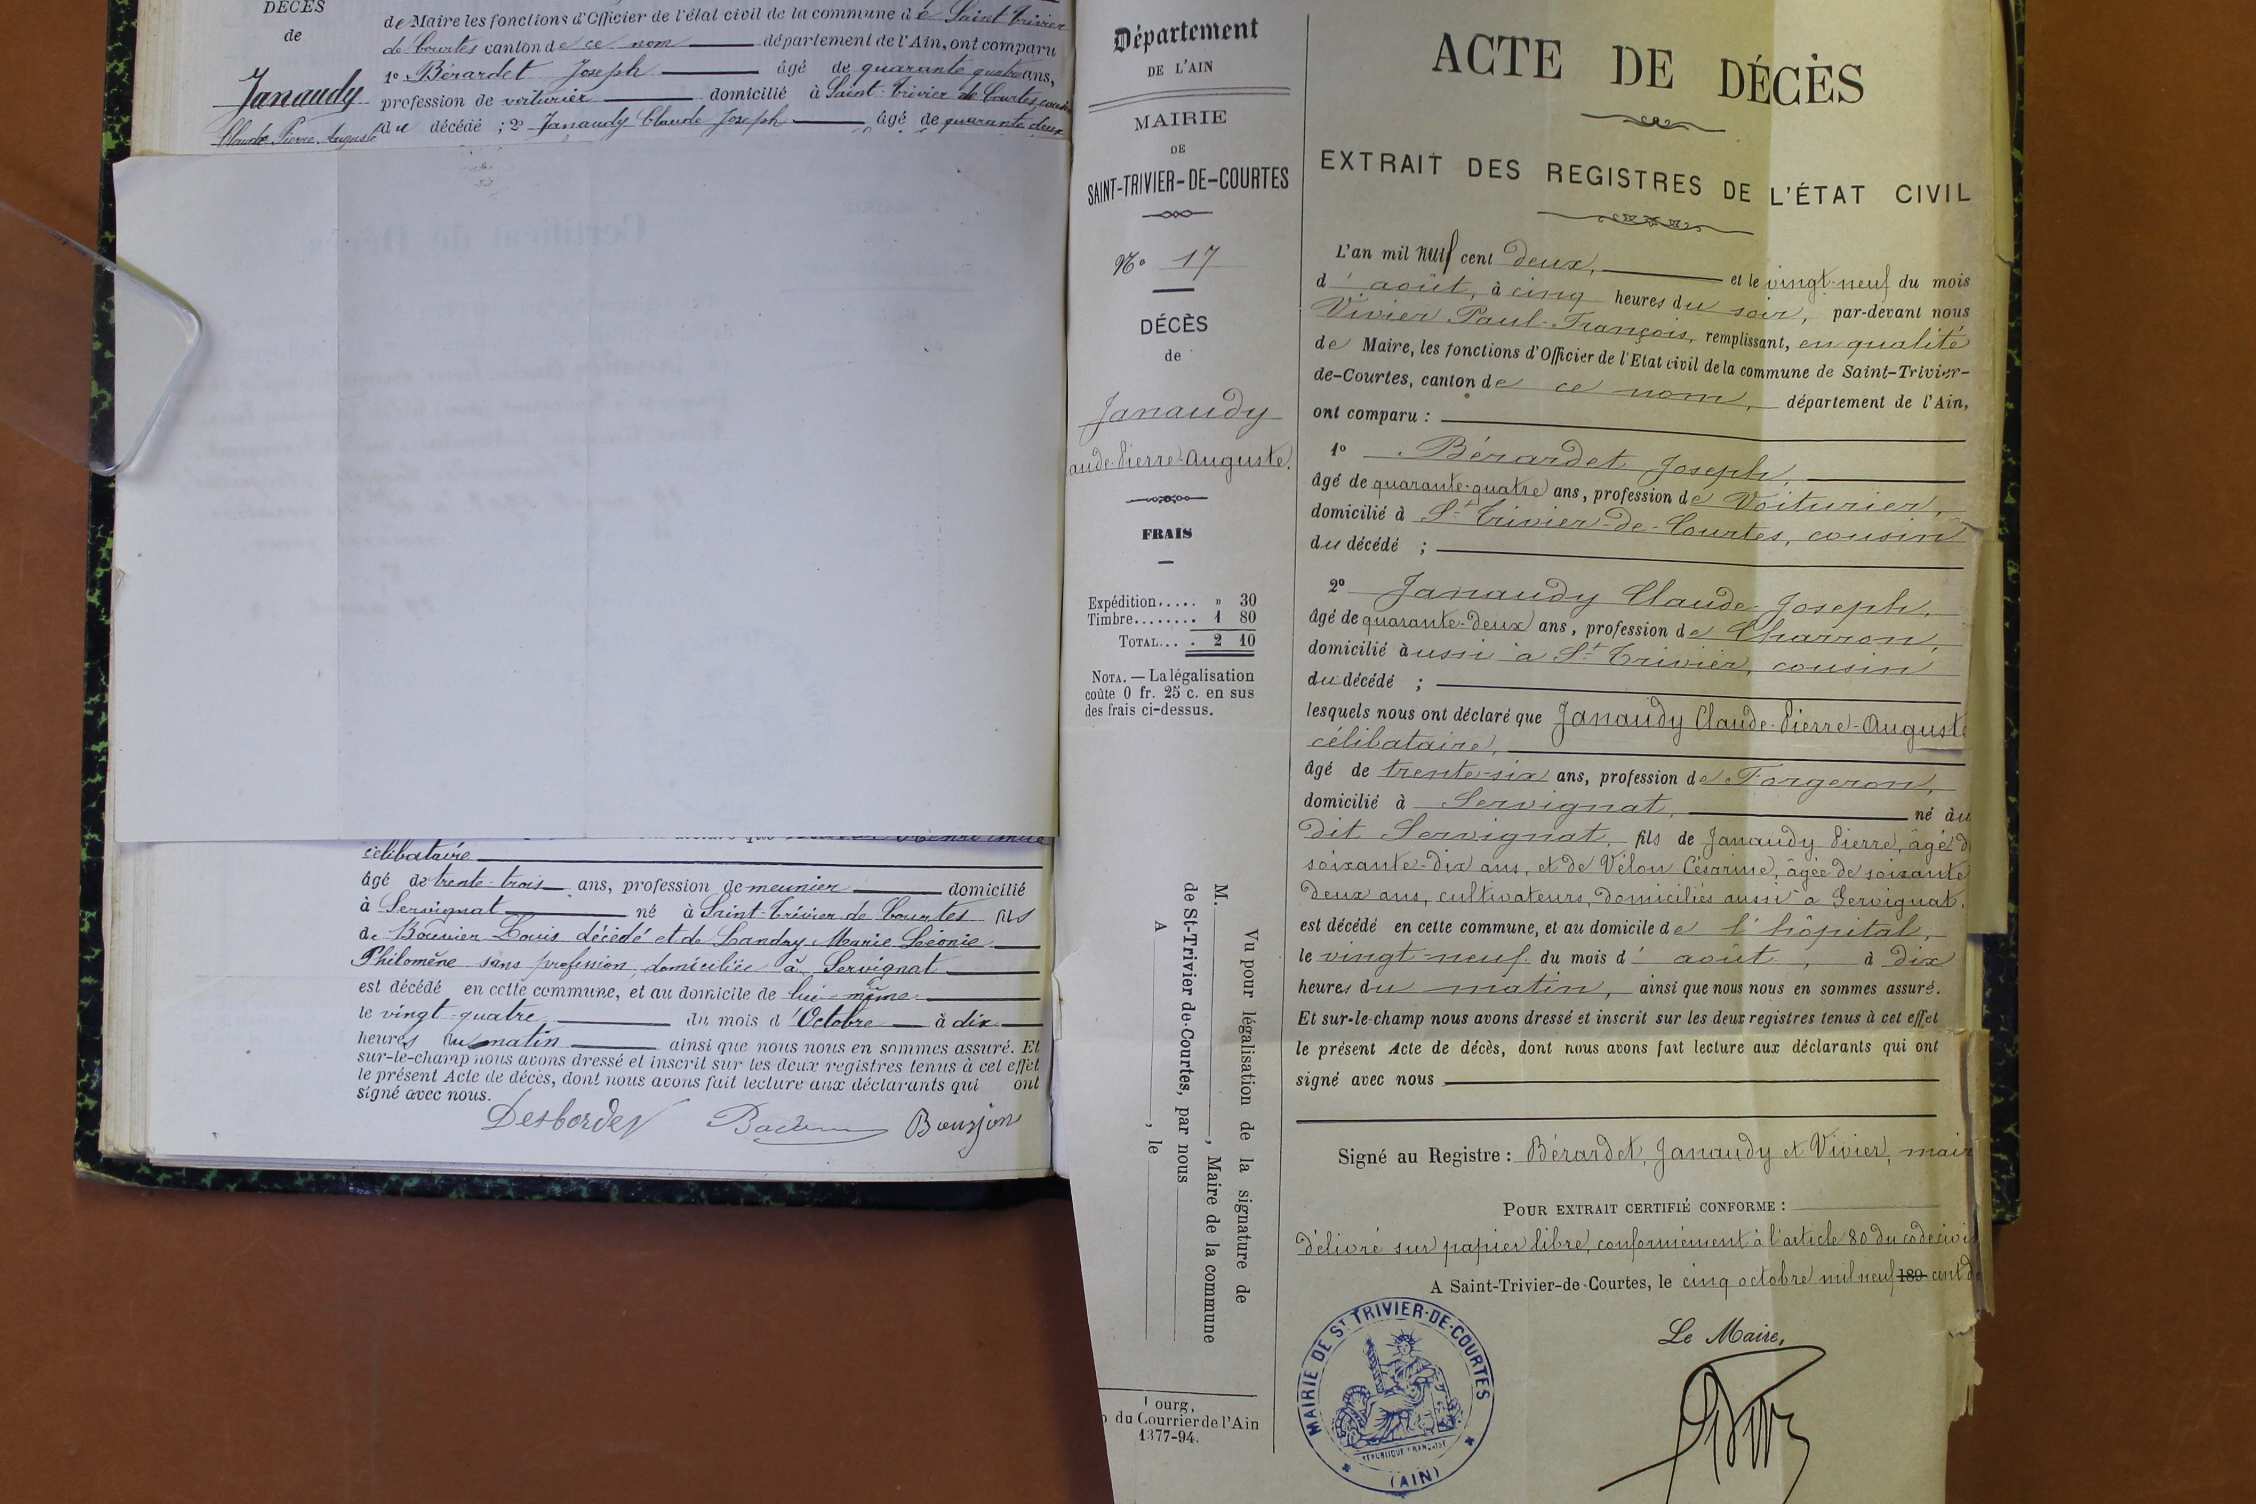 DÉCÈS
de
Janaudy
Claude Pierre Auguste
de Maire les fonctions d'Officier de l'état civil de la commune de Saint Trivier
de Courtes canton de ce nom département de l'Ain, ont comparu
1º Bérardet Joseph âgé de quarante quatre ans,
profession de voiturier domicilié à Saint-Trivier de Courtes, cousin
du décédé ; 2º Janaudy Claude Joseph âgé de quarante deux
célibataire
âgé de trente-trois ans, profession de meunier domicilié
à Servignat né à Saint-Trivier de Courtes fils
de Bouvier Louis décédé et de Landry Marie Léonie
Philomène sans profession, domiciliée à Servignat
est décédé en cette commune, et au domicile de lui-même
le vingt-quatre du mois d'Octobre à dix
heures du matin ainsi que nous nous en sommes assuré. Et
sur-le-champ nous avons dressé et inscrit sur les deux registres tenus à cet effet
le présent Acte de décès, dont nous avons fait lecture aux déclarants qui ont
signé avec nous.
Desbordes
Département
DE L'AIN
MAIRIE
DE
SAINT-TRIVIER-DE-COURTES
Nº 17
DÉCÈS
de
Janaudy
aude-Pierre-Auguste.
FRAIS
Expédition..... » 30
Timbre........ 1 80
TOTAL... . 2 10
NOTA. — La légalisation
coûte 0 fr. 25 c. en sus
des frais ci-dessus.
Vu pour légalisation de la signature de
M. , Maire de la commune
de St-Trivier-de-Courtes, par nous
A , le
ourg,
du Courrier de l'Ain
1377-94.
ACTE DE DÉCÈS
EXTRAIT DES REGISTRES DE L'ÉTAT CIVIL
L'an mil neuf cent deux, et le vingt-neuf du mois
d'août, à cinq heures du soir, par-devant nous
Vivier Paul-François, remplissant, en qualité
de Maire, les fonctions d'Officier de l'Etat civil de la commune de Saint-Trivier-
de-Courtes, canton de ce nom, département de l'Ain,
ont comparu :
1º Bérardet Joseph,
âgé de quarante-quatre ans, profession de Voiturier,
domicilié à St-Trivier-de-Courtes, cousin
du décédé ;
2º Janaudy Claude-Joseph,
âgé de quarante-deux ans, profession de Charron,
domicilié aussi à St-Trivier, cousin
du décédé ;
lesquels nous ont déclaré que Janaudy Claude-Pierre-Auguste
célibataire,
âgé de trente-six ans, profession de Forgeron,
domicilié à Servignat, né au
dit Servignat, fils de Janaudy Pierre, âgé d
soixante-dix ans, et de Vélon Césarine, âgée de soixante
deux ans, cultivateurs, domiciliés aussi à Servignat.
est décédé en cette commune, et au domicile de l'hôpital,
le vingt-neuf du mois d'août, à dix
heures du matin, ainsi que nous nous en sommes assuré.
Et sur-le-champ nous avons dressé et inscrit sur les deux registres tenus à cet effet
le présent Acte de décès, dont nous avons fait lecture aux déclarants qui ont
signé avec nous
Signé au Registre : Bérardet, Janaudy et Vivier, mair
POUR EXTRAIT CERTIFIÉ CONFORME :
délivré sur papier libre, conformément à l'article 80 du code civil
A Saint-Trivier-de-Courtes, le cinq octobre mil neuf 189 cent d
Le Maire,
MAIRIE DE ST TRIVIER-DE-COURTES
RÉPUBLIQUE FRANÇAISE
(AIN)